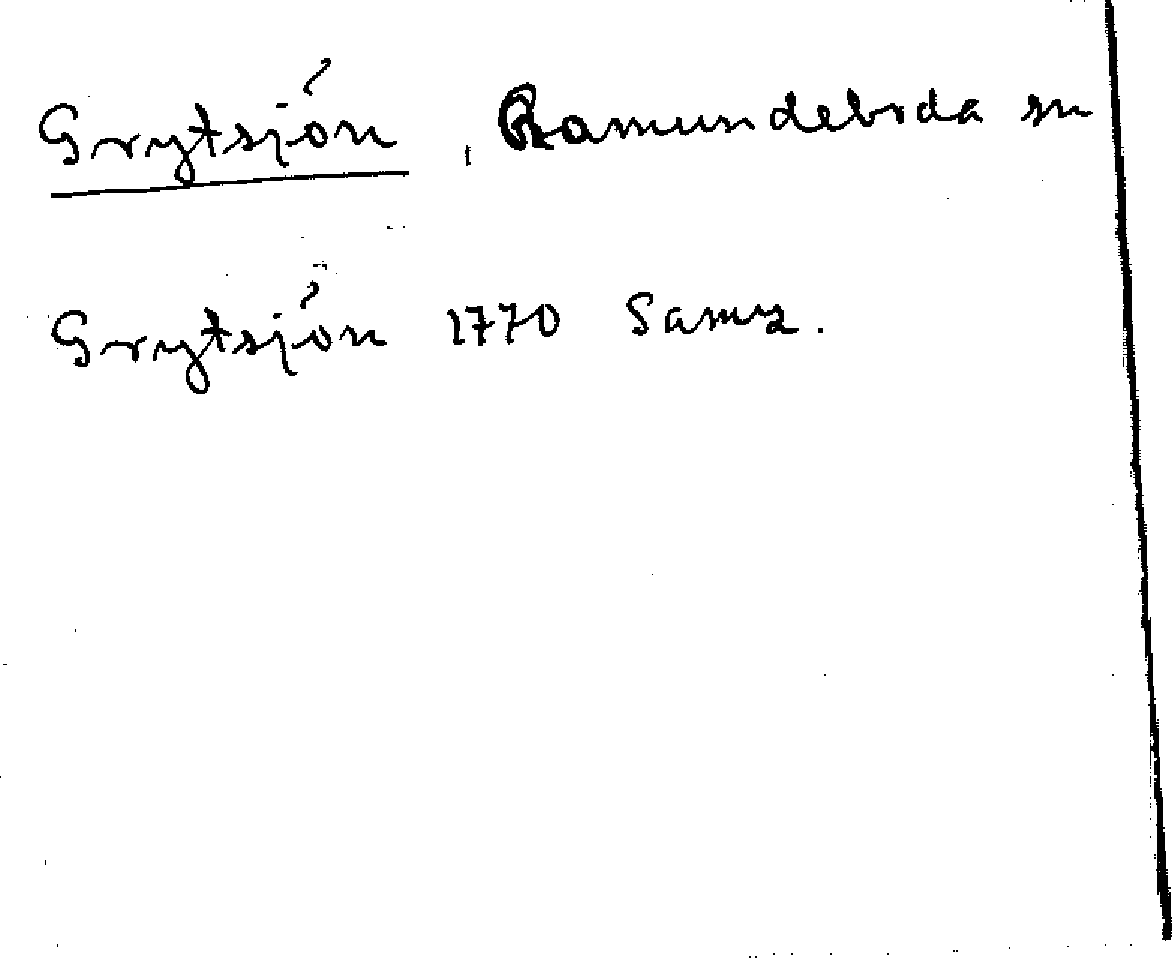 Grytsjön, Ramundeboda sn
Grytsjön 1770